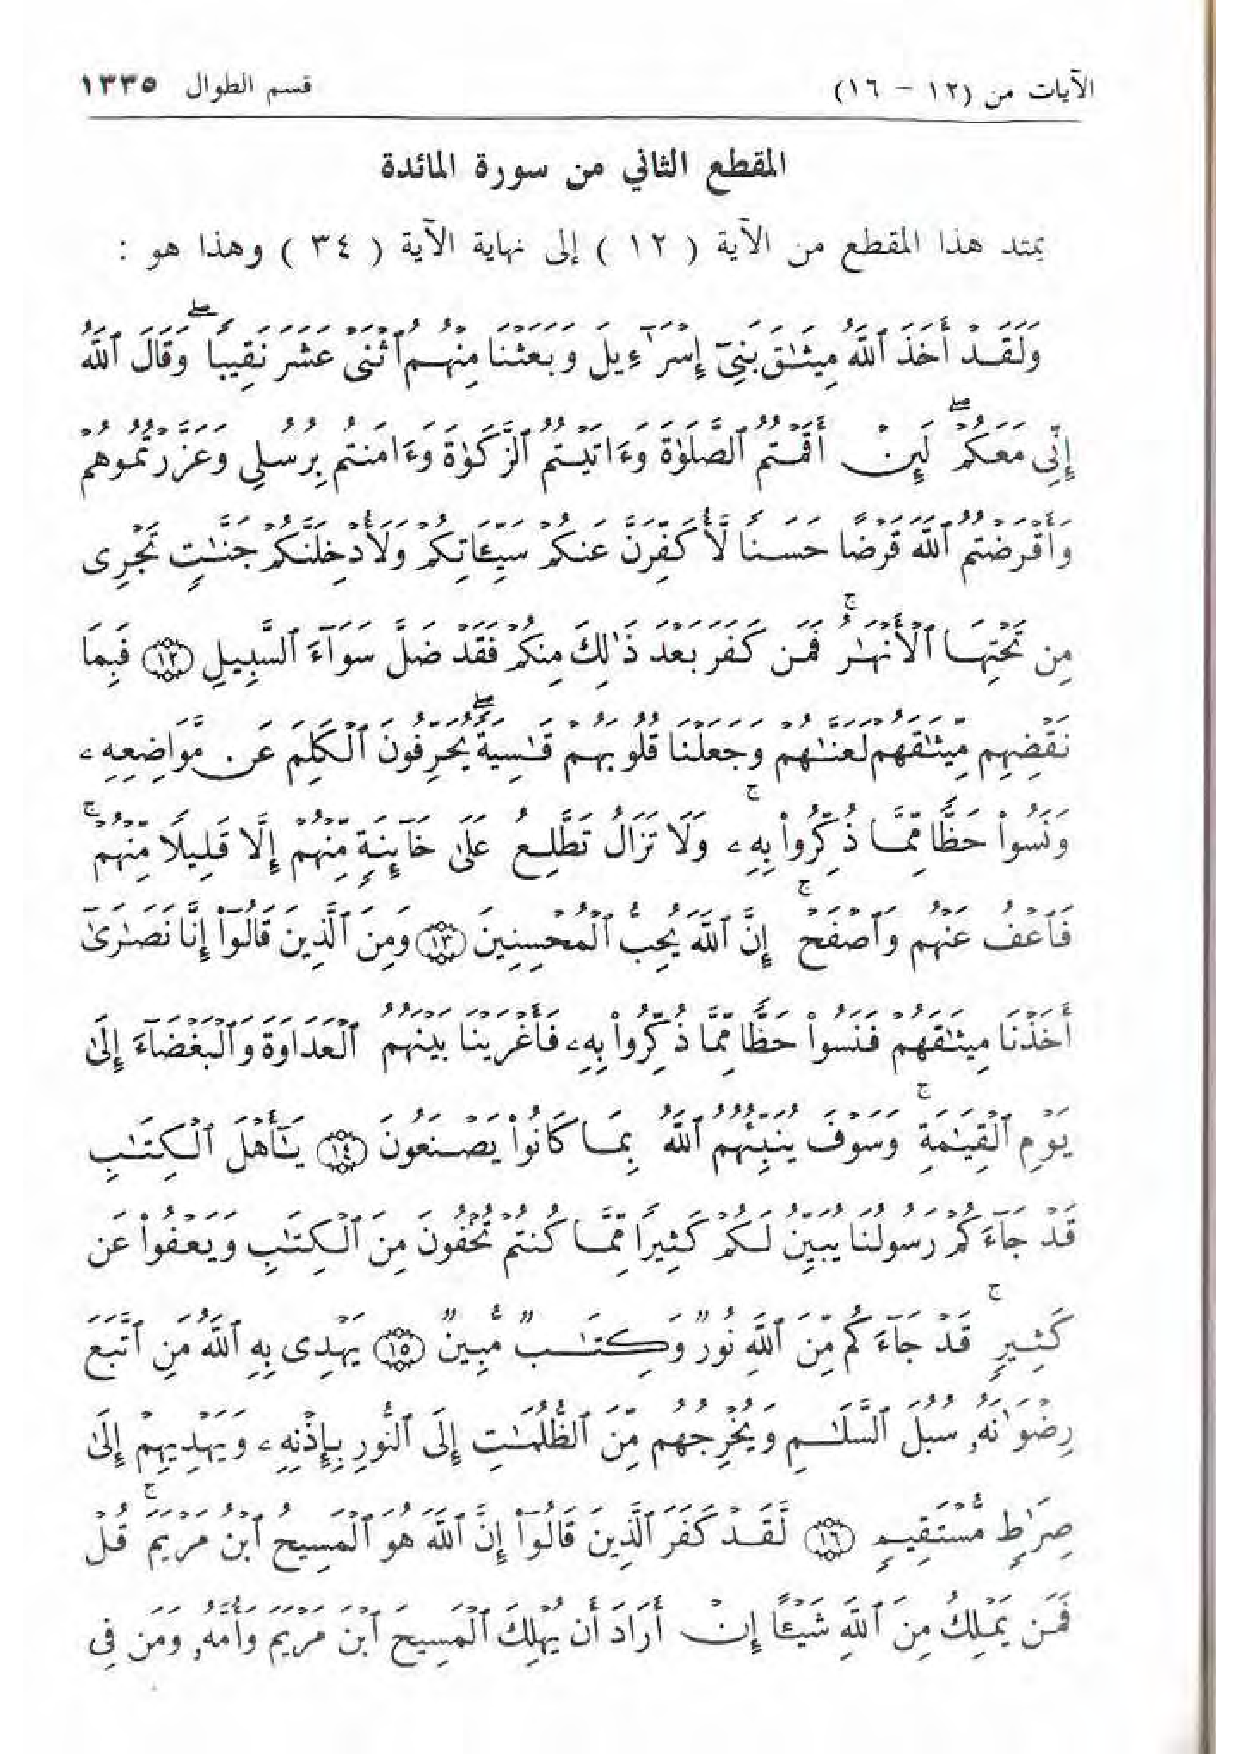 الآيات من (١٢ - ١٦)
قسم الطوال ١٣٣٥
المقطع الثاني من سورة المائدة
يمتد هذا المقطع من الآية ( ١٢ ) إلى نهاية الآية ( ٣٤ ) وهذا هو :
وَلَقَدْ أَخَذَ ٱللَّهُ مِيثَٰقَ بَنِىٓ إِسْرَٰٓءِيلَ وَبَعَثْنَا مِنْهُمُ ٱثْنَىْ عَشَرَ نَقِيبًا ۖ وَقَالَ ٱللَّهُ
إِنِّى مَعَكُمْ ۖ لَئِنْ أَقَمْتُمُ ٱلصَّلَوٰةَ وَءَاتَيْتُمُ ٱلزَّكَوٰةَ وَءَامَنتُم بِرُسُلِى وَعَزَّرْتُمُوهُمْ
وَأَقْرَضْتُمُ ٱللَّهَ قَرْضًا حَسَنًا لَّأُكَفِّرَنَّ عَنكُمْ سَيِّـَٔاتِكُمْ وَلَأُدْخِلَنَّكُمْ جَنَّٰتٍ تَجْرِى
مِن تَحْتِهَا ٱلْأَنْهَٰرُ ۚ فَمَن كَفَرَ بَعْدَ ذَٰلِكَ مِنكُمْ فَقَدْ ضَلَّ سَوَآءَ ٱلسَّبِيلِ ﴿١٢﴾ فَبِمَا
نَقْضِهِم مِّيثَٰقَهُمْ لَعَنَّٰهُمْ وَجَعَلْنَا قُلُوبَهُمْ قَٰسِيَةً ۖ يُحَرِّفُونَ ٱلْكَلِمَ عَن مَّوَاضِعِهِۦ
وَنَسُوا۟ حَظًّا مِّمَّا ذُكِّرُوا۟ بِهِۦ ۚ وَلَا تَزَالُ تَطَّلِعُ عَلَىٰ خَآئِنَةٍ مِّنْهُمْ إِلَّا قَلِيلًا مِّنْهُمْ ۚ
فَٱعْفُ عَنْهُمْ وَٱصْفَحْ ۚ إِنَّ ٱللَّهَ يُحِبُّ ٱلْمُحْسِنِينَ ﴿١٣﴾ وَمِنَ ٱلَّذِينَ قَالُوٓا۟ إِنَّا نَصَٰرَىٰٓ
أَخَذْنَا مِيثَٰقَهُمْ فَنَسُوا۟ حَظًّا مِّمَّا ذُكِّرُوا۟ بِهِۦ فَأَغْرَيْنَا بَيْنَهُمُ ٱلْعَدَاوَةَ وَٱلْبَغْضَآءَ إِلَىٰ
يَوْمِ ٱلْقِيَٰمَةِ ۚ وَسَوْفَ يُنَبِّئُهُمُ ٱللَّهُ بِمَا كَانُوا۟ يَصْنَعُونَ ﴿١٤﴾ يَٰٓأَهْلَ ٱلْكِتَٰبِ
قَدْ جَآءَكُمْ رَسُولُنَا يُبَيِّنُ لَكُمْ كَثِيرًا مِّمَّا كُنتُمْ تُخْفُونَ مِنَ ٱلْكِتَٰبِ وَيَعْفُوا۟ عَن
كَثِيرٍ ۚ قَدْ جَآءَكُم مِّنَ ٱللَّهِ نُورٌ وَكِتَٰبٌ مُّبِينٌ ﴿١٥﴾ يَهْدِى بِهِ ٱللَّهُ مَنِ ٱتَّبَعَ
رِضْوَٰنَهُۥ سُبُلَ ٱلسَّلَٰمِ وَيُخْرِجُهُم مِّنَ ٱلظُّلُمَٰتِ إِلَى ٱلنُّورِ بِإِذْنِهِۦ وَيَهْدِيهِمْ إِلَىٰ
صِرَٰطٍ مُّسْتَقِيمٍ ﴿١٦﴾ لَّقَدْ كَفَرَ ٱلَّذِينَ قَالُوٓا۟ إِنَّ ٱللَّهَ هُوَ ٱلْمَسِيحُ ٱبْنُ مَرْيَمَ ۚ قُلْ
فَمَن يَمْلِكُ مِنَ ٱللَّهِ شَيْـًٔا إِنْ أَرَادَ أَن يُهْلِكَ ٱلْمَسِيحَ ٱبْنَ مَرْيَمَ وَأُمَّهُۥ وَمَن فِى